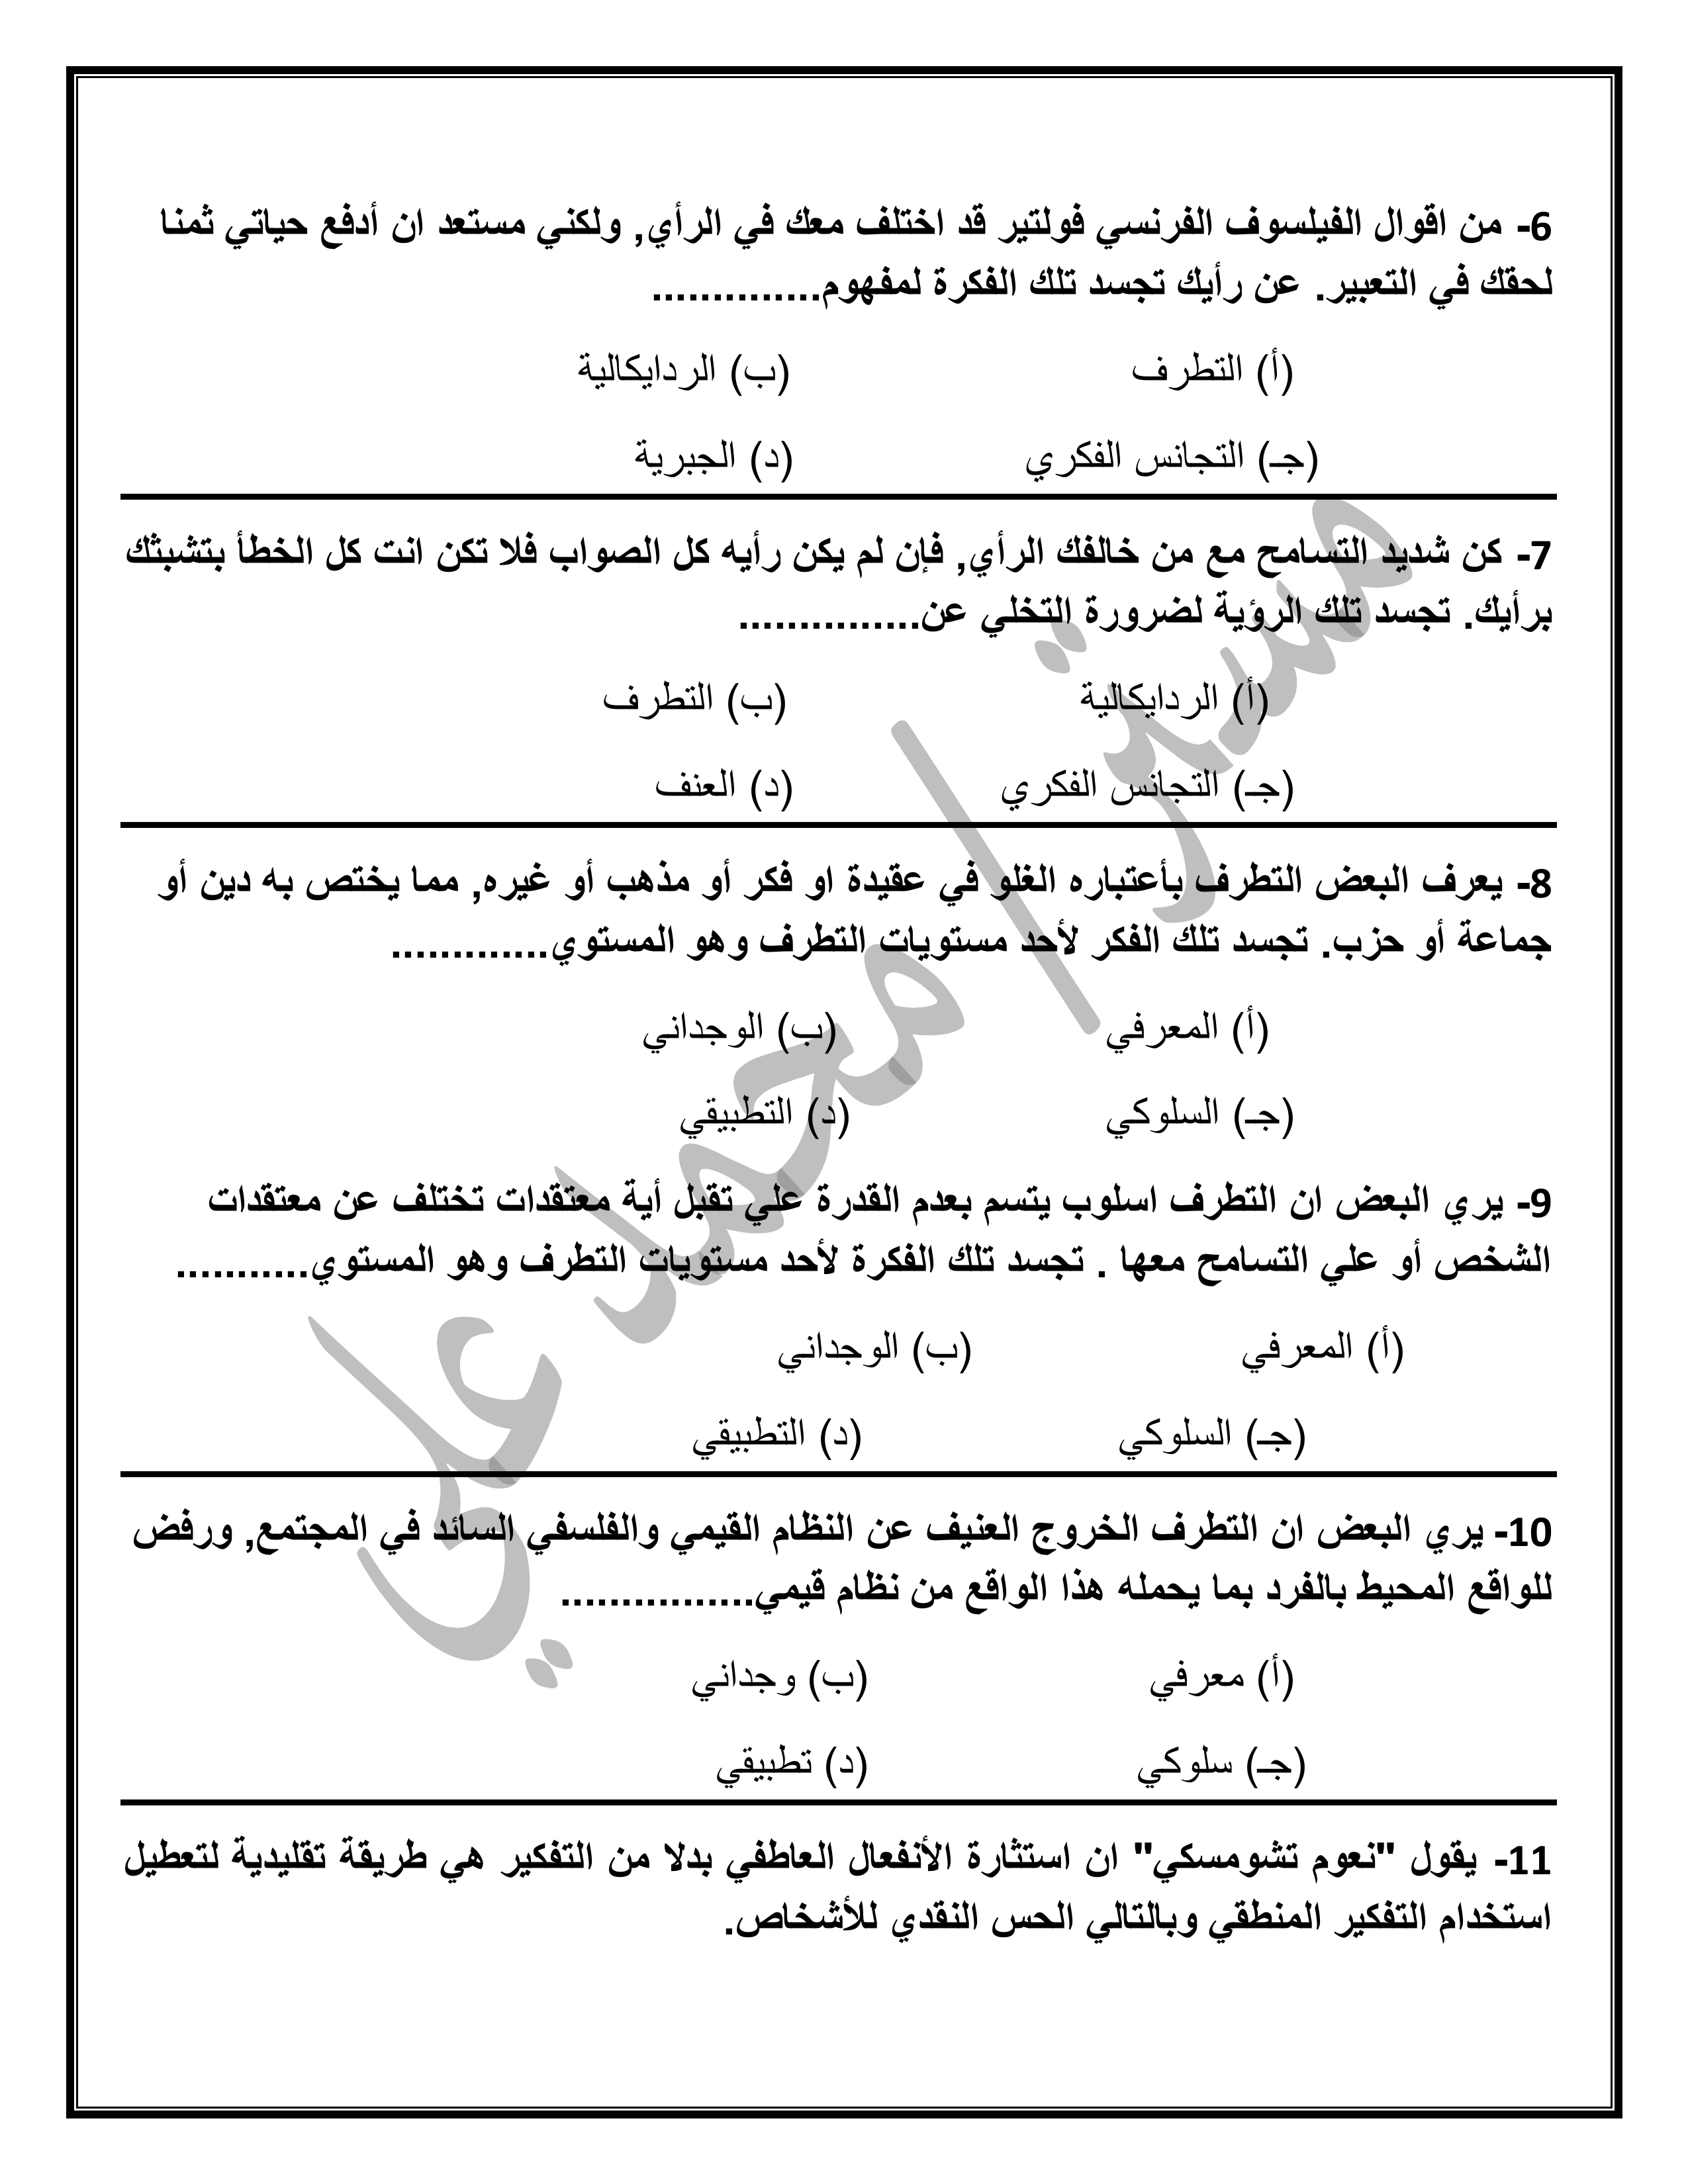 6- من اقوال الفيلسوف الفرنسي فولتير قد اختلف معك في الرأي, ولكني مستعد ان أدفع حياتي ثمنا
لحقك في التعبير. عن رأيك تجسد تلك الفكرة لمفهوم..............
(أ) التطرف (ب) الردايكالية
(جـ) التجانس الفكري (د) الجبرية
7- كن شديد التسامح مع من خالفك الرأي, فإن لم يكن رأيه كل الصواب فلا تكن انت كل الخطأ بتشبثك
برأيك. تجسد تلك الرؤية لضرورة التخلي عن...............
(أ) الردايكالية (ب) التطرف
(جـ) التجانس الفكري (د) العنف
8- يعرف البعض التطرف بأعتباره الغلو في عقيدة او فكر أو مذهب أو غيره, مما يختص به دين أو
جماعة أو حزب. تجسد تلك الفكر لأحد مستويات التطرف وهو المستوي.............
(أ) المعرفي (ب) الوجداني
(جـ) السلوكي (د) التطبيقي
9- يري البعض ان التطرف اسلوب يتسم بعدم القدرة علي تقبل أية معتقدات تختلف عن معتقدات
الشخص أو علي التسامح معها . تجسد تلك الفكرة لأحد مستويات التطرف وهو المستوي...........
(أ) المعرفي (ب) الوجداني
(جـ) السلوكي (د) التطبيقي
10- يري البعض ان التطرف الخروج العنيف عن النظام القيمي والفلسفي السائد في المجتمع, ورفض
للواقع المحيط بالفرد بما يحمله هذا الواقع من نظام قيمي................
(أ) معرفي (ب) وجداني
(جـ) سلوكي (د) تطبيقي
11- يقول "نعوم تشومسكي" ان استثارة الأنفعال العاطفي بدلا من التفكير هي طريقة تقليدية لتعطيل
استخدام التفكير المنطقي وبالتالي الحس النقدي للأشخاص.
مستر/ محمد علي